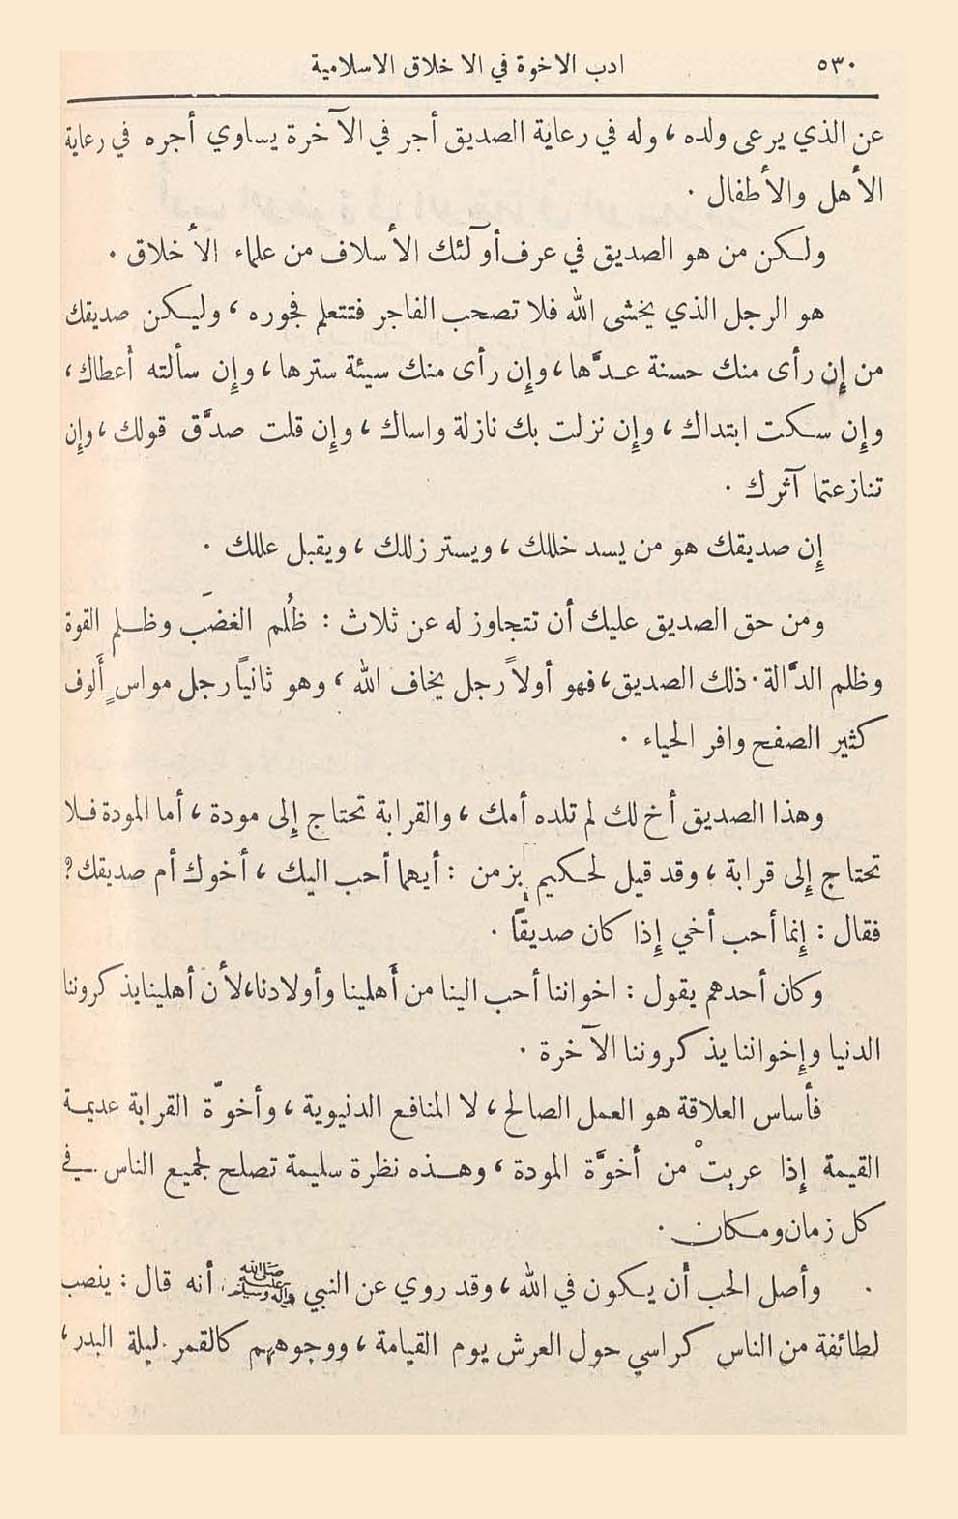 ٥٣٠ ادب الاخوة في الاخلاق الاسلامية
عن الذي يرعى ولده ، وله في رعاية الصديق أجر في الآخرة يساوي أجره في رعاية
الأهل والأطفال .
ولكن من هو الصديق في عرف أولئك الأسلاف من علماء الأخلاق .
هو الرجل الذي يخشى الله فلا تصحب الفاجر فتتعلم فجوره ، وليكن صديقك
من إن رأى منك حسنة عدَّها ، وإن رأى منك سيئة سترها ، وإن سألته أعطاك ،
وإن سكت ابتداك ، وإن نزلت بك نازلة واساك ، وإن قلت صدَّق قولك ، وإن
تنازعتما آثرك .
إن صديقك هو من يسد خللك ، ويستر زللك ، ويقبل عللك .
ومن حق الصديق عليك أن تتجاوز له عن ثلاث : ظُلم الغضَب وظلم القوة
وظلم الدَّالة . ذلك الصديق ، فهو أولاً رجل يخاف الله ، وهو ثانياً رجل مواسٍ أَلوف
كثير الصفح وافر الحياء .
وهذا الصديق أخ لك لم تلده أمك ، والقرابة تحتاج إلى مودة ، أما المودة فلا
تحتاج إلى قرابة ، وقد قيل لحكيم بزمن : أيهما أحب اليك ، أخوك أم صديقك ?
فقال : إنما أحب أخي إذا كان صديقاً .
وكان أحدهم يقول : اخواننا أحب الينا من أَهلينا وأولادنا ، لأن أهلينا يذكروننا
الدنيا وإخواننا يذكروننا الآخرة .
فأساس العلاقة هو العمل الصالح ، لا المنافع الدنيوية ، وأخوّة القرابة عديمة
القيمة إذا عريتْ من أخوَّة المودة ، وهذه نظرة سليمة تصلح لجميع الناس في
كل زمان ومكان .
وأصل الحب أن يكون في الله ، وقد روي عن النبي صلى الله عليه وآله وسلم أنه قال : ينصب
لطائفة من الناس كراسي حول العرش يوم القيامة ، ووجوههم كالقمر ليلة البدر ،